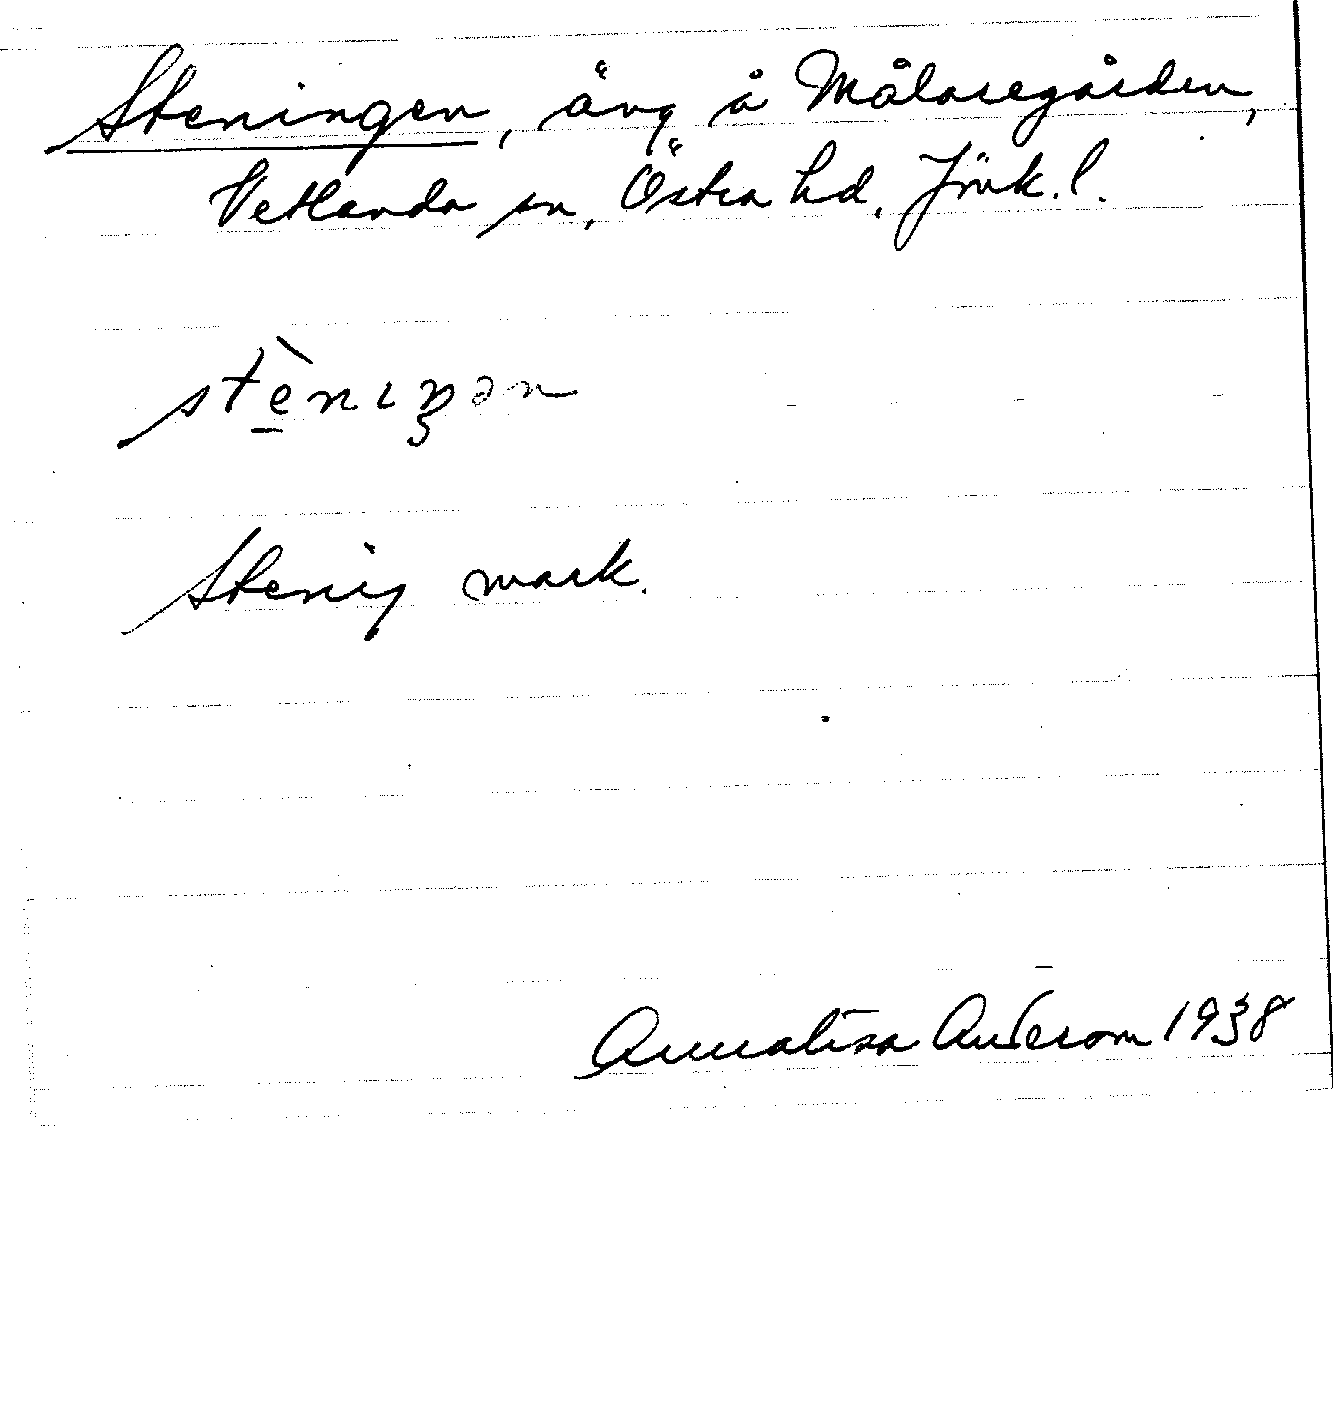 Steningen, äng å Målaregården,
Vetlanda sn, Östra hd, Jönk. l.
stèniŋən
Stenig mark.
Annalisa Anderson 1938